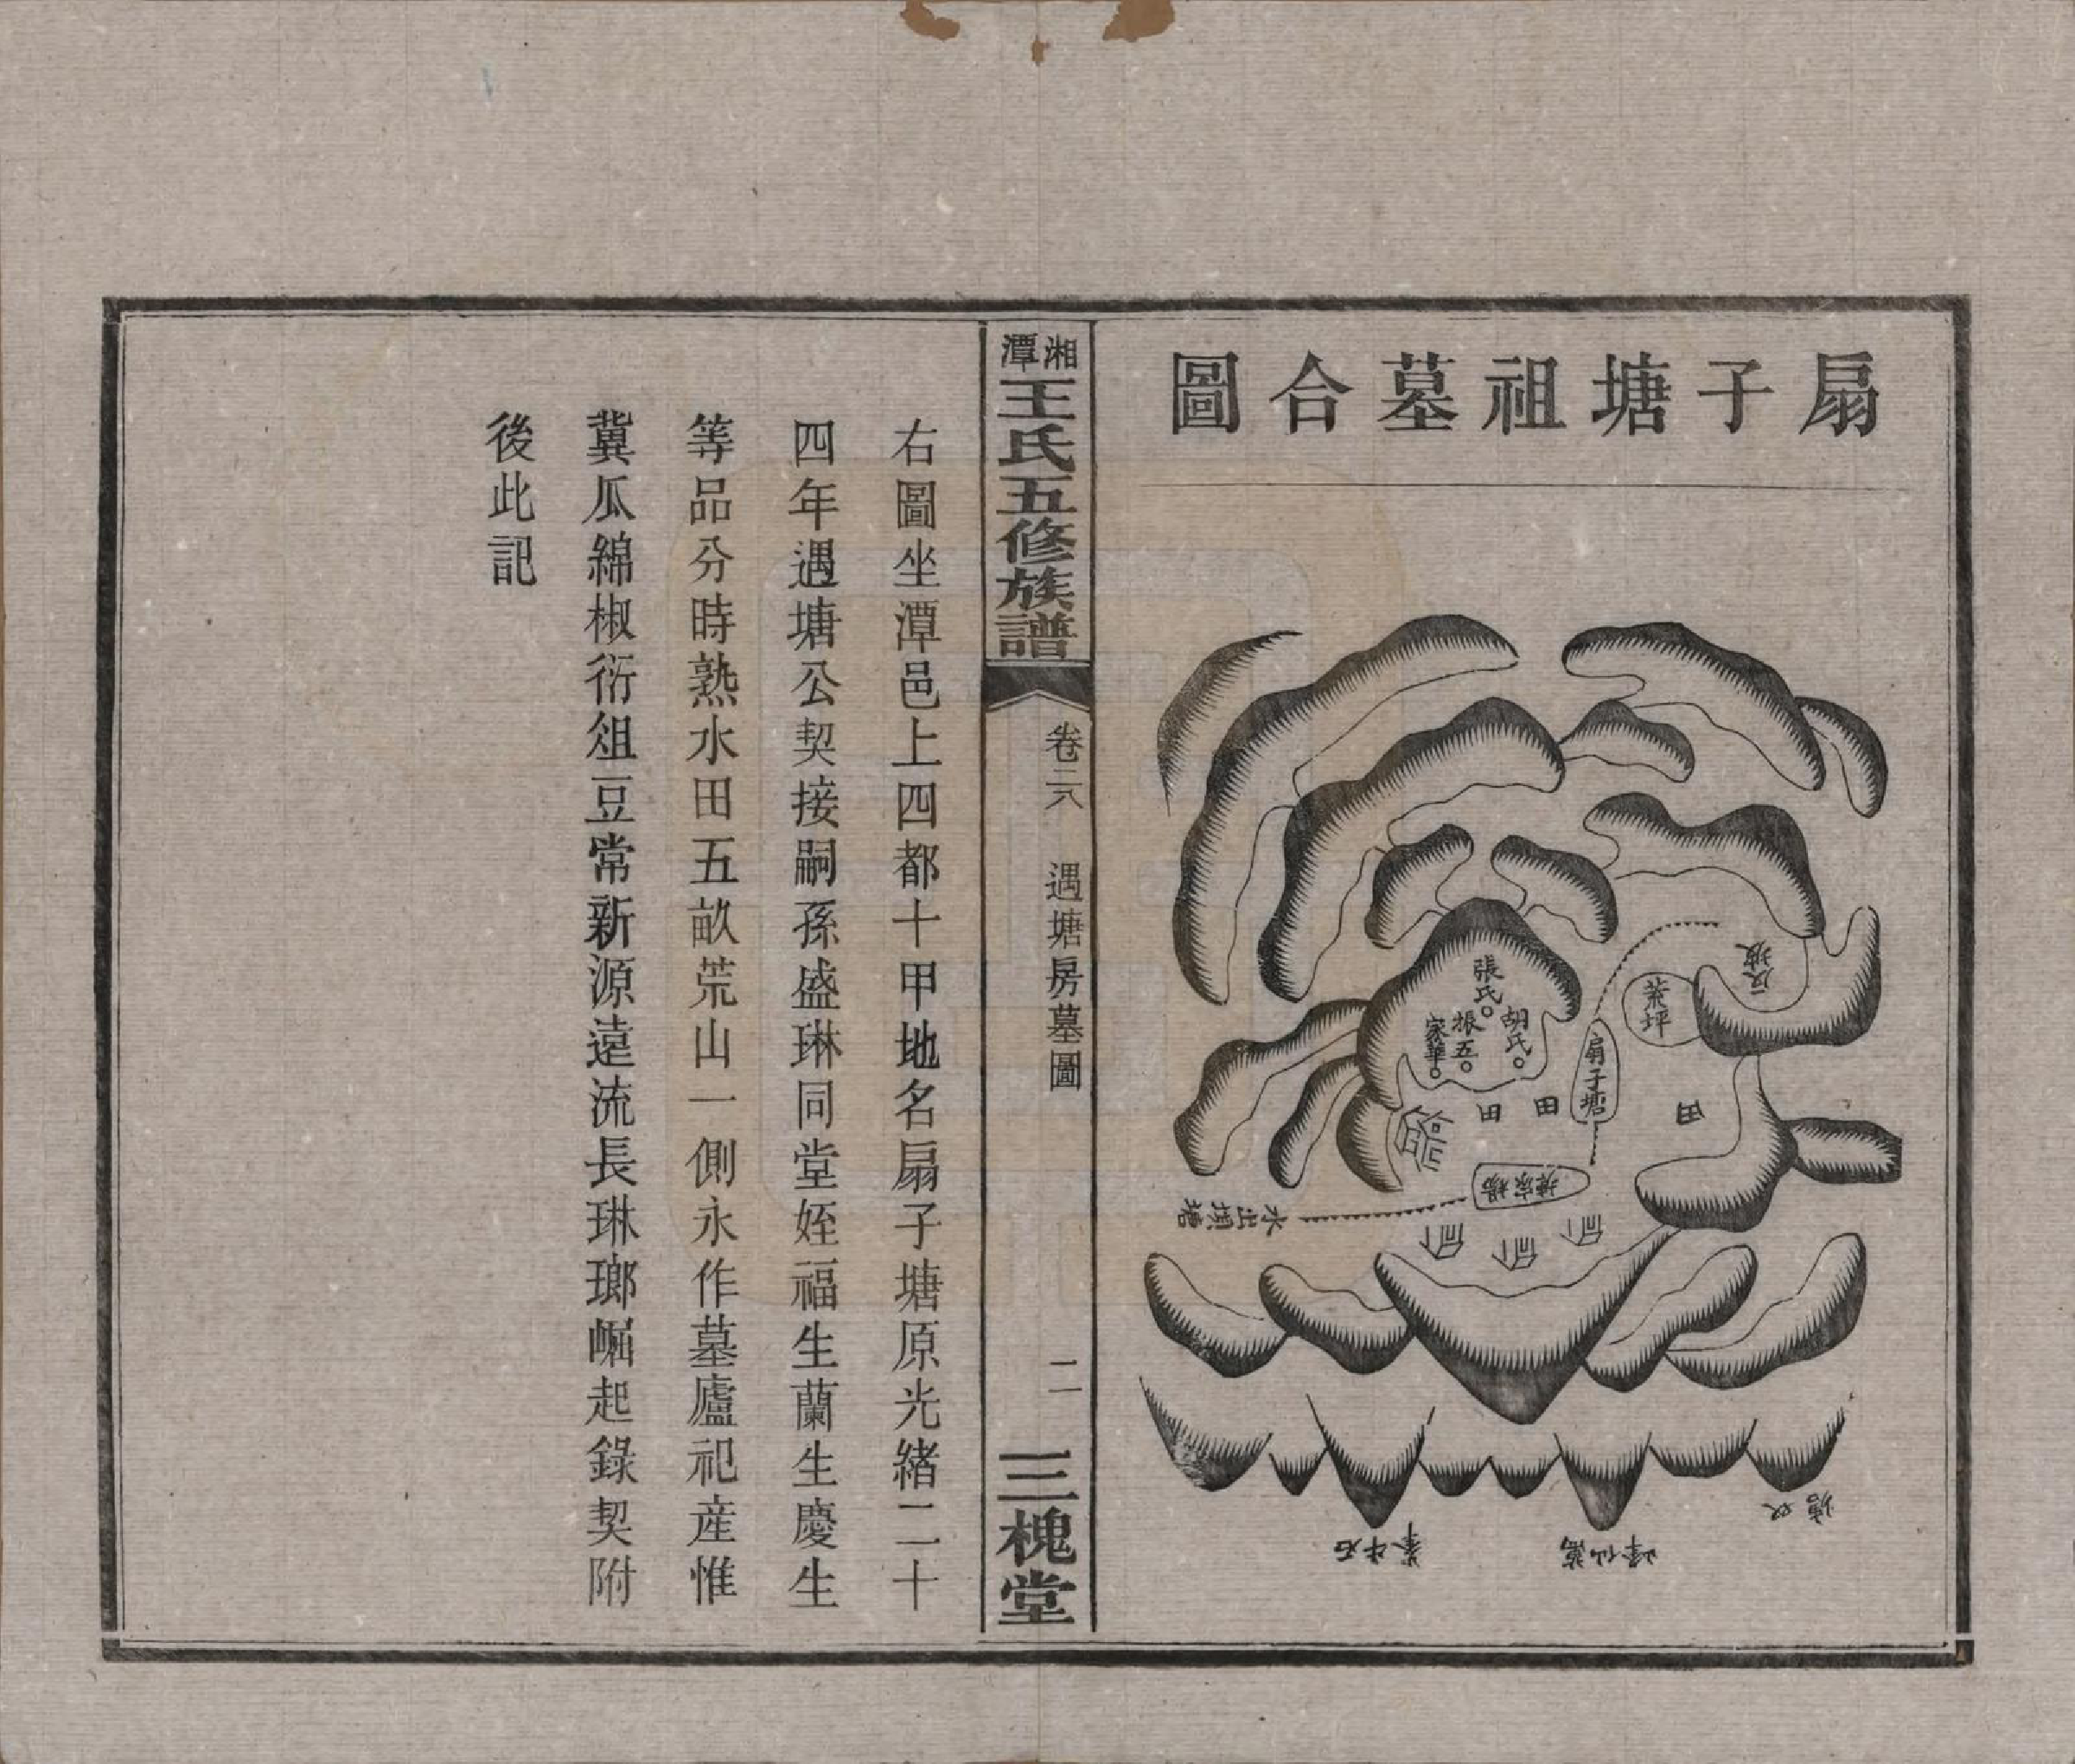 扇子塘祖墓合圖
張氏
胡氏
振五
家華
扇子塘
茶坪
田
田
田
水出壩塘
石牛峯
湘潭王氏五修族譜
卷二八
遇塘房墓圖
二一
三槐堂
右圖坐潭邑上四都十甲地名扇子塘原光緒二十
四年遇塘公契接嗣孫盛琳同堂姪福生蘭生慶生
等品分時熟水田五畝荒山一側永作墓廬祀產惟
冀瓜綿椒衍俎豆常新源遠流長琳瑯崛起錄契附
後此記